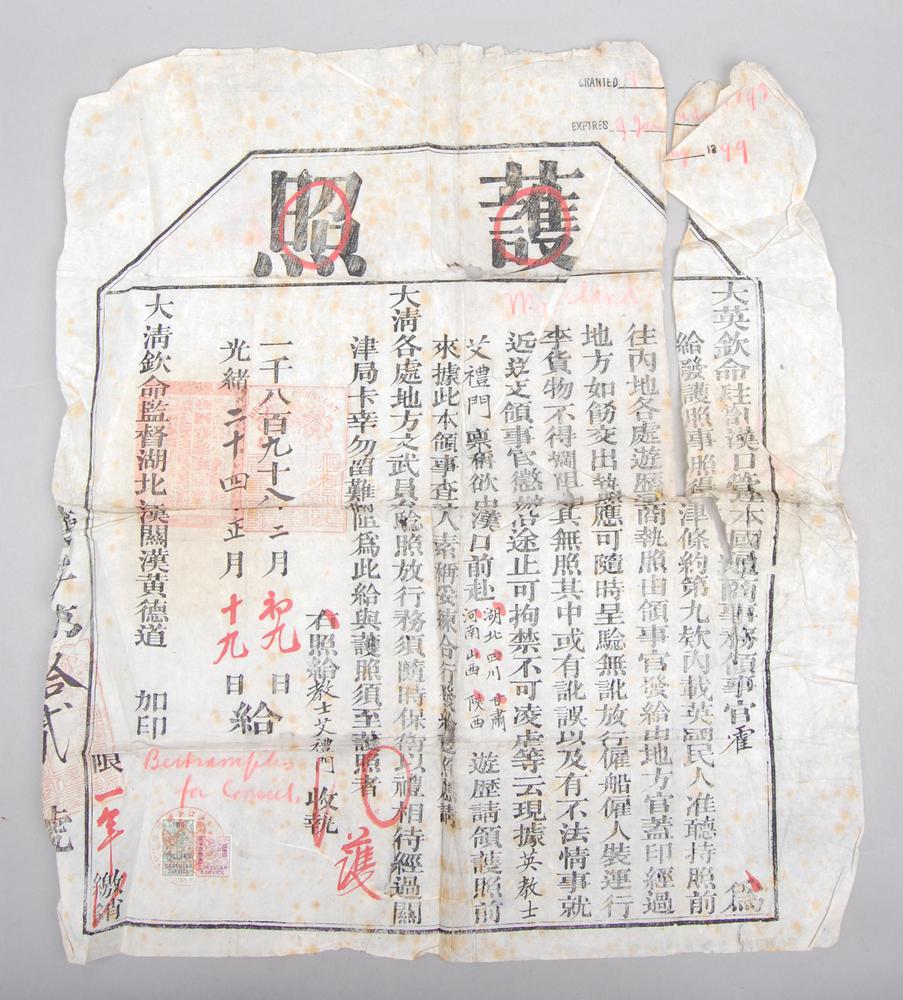 GRANTED 1898
EXPIRES 9 1899
護照
大英欽命駐劄漢口管本國通商事務領事官霍 為
給發護照事照得津條約第九款內載英國民人准聽持照前
往內地各處遊歷通商執照由領事官發給由地方官蓋印經過
地方如飭交出執照應可隨時呈驗無訛放行僱船僱人裝運行
李貨物不得攔阻如其無照其中或有訛誤以及有不法情事就
近送交領事官懲辦沿途止可拘禁不可凌虐等云現據英教士
艾禮門 稟稱欲由漢口前赴湖北 四川 甘肅 河南 山西 陝西 遊歷請領護照前
來據此本領事查該人素稱妥練合行發給護照應請
大清各處地方文武員弁驗照放行務須隨時保衛以禮相待經過關
津局卡幸勿留難攔阻為此給與護照須至護照者
右照給教士艾禮門 收執
一千八百九十八年二月初九日 給
光緒二十四年正月十九日
大清欽命監督湖北漢關漢黃德道 加印
限一年繳銷
拾貳號
護
for Consul
CONSULAR SERVICE
CONSULAR SERVICE